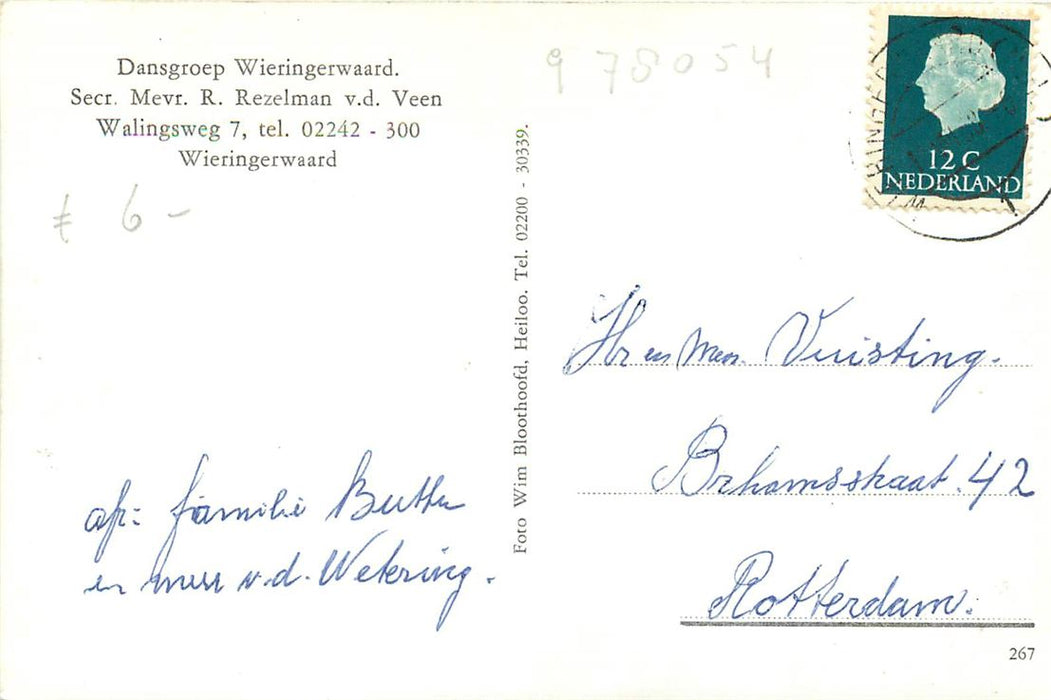 Dansgroep Wieringerwaard.
Secr. Mevr. R. Rezelman v.d. Veen
Walingsweg 7, tel. 02242 - 300
Wieringerwaard
€ 6 -
978054
12 C
NEDERLAND
Foto Wim Bloothoofd, Heiloo. Tel. 02200 - 30339.
Hr en Mevr. Vuisting.
42
Rotterdam.
afz: familie
en mevr v.d. Wetering.
267